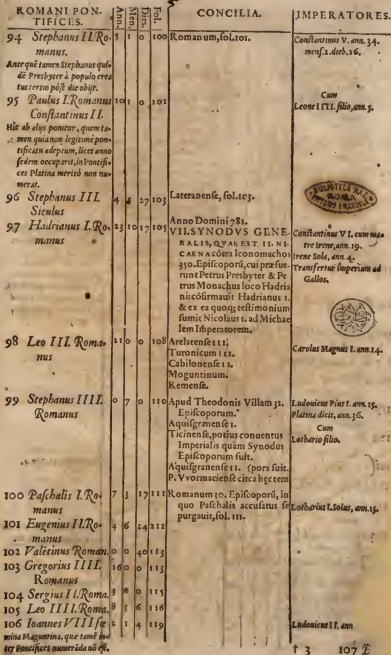 ROMANI PON-
TIFICES.
Ann.
Men.
Dies.
Fol.
CONCILIA.
IMPERATORES.
94 Stephanus II. Ro- 5 1 0 100 Romanum, fol. 101.
manus.
Constantinus V. ann. 34.
mens. 2. dieb. 26.
Ante quē tamen Stephanus qui-
dē Presbyter à populo crea
tus tertio pòst die obijt.
95 Paulus I. Romanus 10 1 0 102
Constantinus II.
Cum
Leone IIII. filio, ann. 5.
Hic ab alijs ponitur, quem ta-
men quia non legitimè pon-
tificatū adeptum, licet anno
sedem occuparit, in Pontifi-
ces Platina meritò non nu-
merat.
96 Stephanus III. 4 5 27 103 Lateranense, fol. 103.
Siculus
97 Hadrianus I. Ro- 23 10 17 105
manus
Anno Domini 781.
VII. SYNODVS GENE-
RALIS, QVAE EST. II. NI-
CAENA cōtra Iconomachos
350. Episcoporū, cui præfue-
runt Petrus Presbyter & Pe
trus Monachus loco Hadria
ni: cōfirmauit Hadrianus 1.
& ex ea quoq; testimonium
sumit Nicolaus 1. ad Michae
lem Imperatorem.
Constantinus VI, cum ma-
tre Irene, ann. 19.
Irene Sola, ann. 4.
Transfertur imperium ad
Gallos.
98 Leo III. Roma- 21 0 0 108 Arelatense III.
nus
Turonicum III.
Cabilonense II.
Moguntinum.
Remense.
Carolus Magnus I. ann. 14.
99 Stephanus IIII. 0 7 0 110 Apud Theodonis Villam 32.
Romanus
Episcoporum.
Aquisgranense I.
Ticinense, potius conuentus
Imperialis quàm Synodus
Episcoporum fuit.
Aquisgranense II. (pora fuit.
P. Vvormaciense circa hęc tem
Ludouicus Pius I. ann. 15.
Platina dicit, ann. 36.
Cum
Lothario filio.
100 Paschalis I. Ro- 7 3 17 111 Romanum 30. Episcoporū, in
manus
quo Paschalis accusatus se
purgauit, fol. 111.
Lotharius I. Solus, ann. 15.
101 Eugenius II. Ro- 4 6 24 112
manus
102 Valētinus Roman. 0 0 40 113
103 Gregorius IIII. 16 0 0 113
Romanus
104 Sergius II. Roma. 3 0 0 115
105 Leo IIII. Roma. 8 3 6 116
106 Ioannes VIII fœ 2 1 4 119
mina Maguntina, quę tamē in-
ter Pontifices numerāda nō est.
Ludouicus II. ann
† 3 107